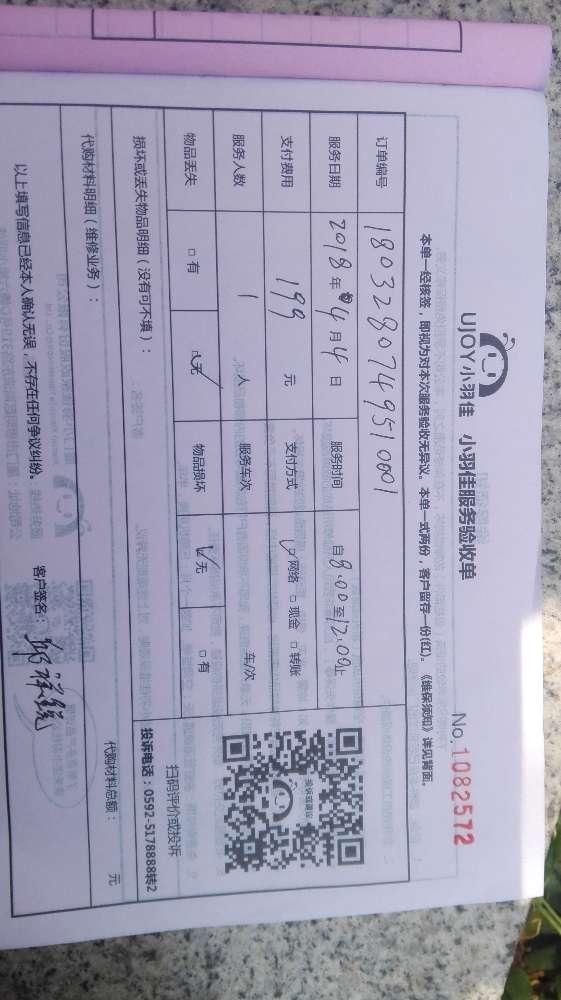 UJOY小羽佳 小羽佳服务验收单
No.1082572
本单一经核签，即视为对本次服务验收无异议。本单一式两份，客户留存一份(红)。《维保须知》详见背面。
订单编号 1803280749510001
服务日期 2018年4月4日 服务时间 自8:00至12:00止
支付费用 199 元 支付方式 ☑网络 □现金 □转账
服务人数 1 人 服务车次 车/次
物品丢失 □有 ☑无 物品损坏 ☑无 □有
投诉或建议
扫码评价或投诉
投诉电话：0592-5178888转2
损坏或丢失物品明细（没有可不填）：
代购材料明细（维修业务）： 代购材料总额： 元
以上填写信息已经本人确认无误，不存在任何争议纠纷。 客户签名：